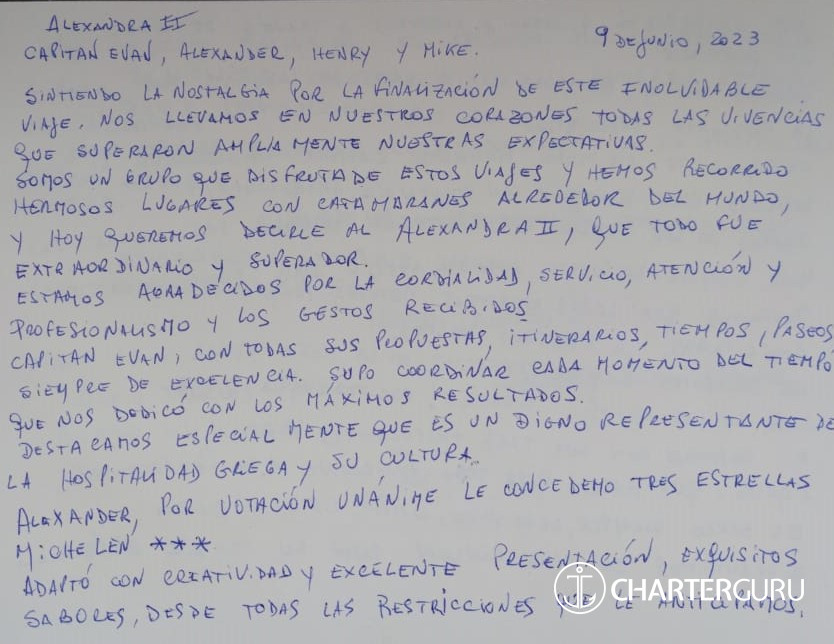 ALEXANDRA II
9 DE JUNIO, 2023
CAPITAN EVAN, ALEXANDER, HENRY Y MIKE.
SINTIENDO LA NOSTALGIA POR LA FINALIZACIÓN DE ESTE INOLVIDABLE
VIAJE, NOS LLEVAMOS EN NUESTROS CORAZONES TODAS LAS VIVENCIAS
QUE SUPERARON AMPLIAMENTE NUESTRAS EXPECTATIVAS.
SOMOS UN GRUPO QUE DISFRUTA DE ESTOS VIAJES Y HEMOS RECORRIDO
HERMOSOS LUGARES CON CATAMARANES ALREDEDOR DEL MUNDO,
Y HOY QUEREMOS DECIRLE AL ALEXANDRA II, QUE TODO FUE
EXTRAORDINARIO Y SUPERADOR.
ESTAMOS AGRADECIDOS POR LA CORDIALIDAD, SERVICIO, ATENCIÓN Y
PROFESIONALISMO Y LOS GESTOS RECIBIDOS
CAPITAN EVAN, CON TODAS SUS PROPUESTAS, ITINERARIOS, TIEMPOS, PASEOS
SIEMPRE DE EXCELENCIA. SUPO COORDINAR CADA MOMENTO DEL TIEMPO
QUE NOS DEDICÓ CON LOS MÁXIMOS RESULTADOS.
DESTACAMOS ESPECIALMENTE QUE ES UN DIGNO REPRESENTANTE DE
LA HOSPITALIDAD GRIEGA Y SU CULTURA.
ALEXANDER, POR VOTACIÓN UNÁNIME LE CONCEDEMO TRES ESTRELLAS
MICHELEN ***
ADAPTÓ CON CREATIVIDAD Y EXCELENTE PRESENTACIÓN, EXQUISITOS
SABORES, DESDE TODAS LAS RESTRICCIONES QUE LE ANTICIPAMOS.
CHARTERGURU